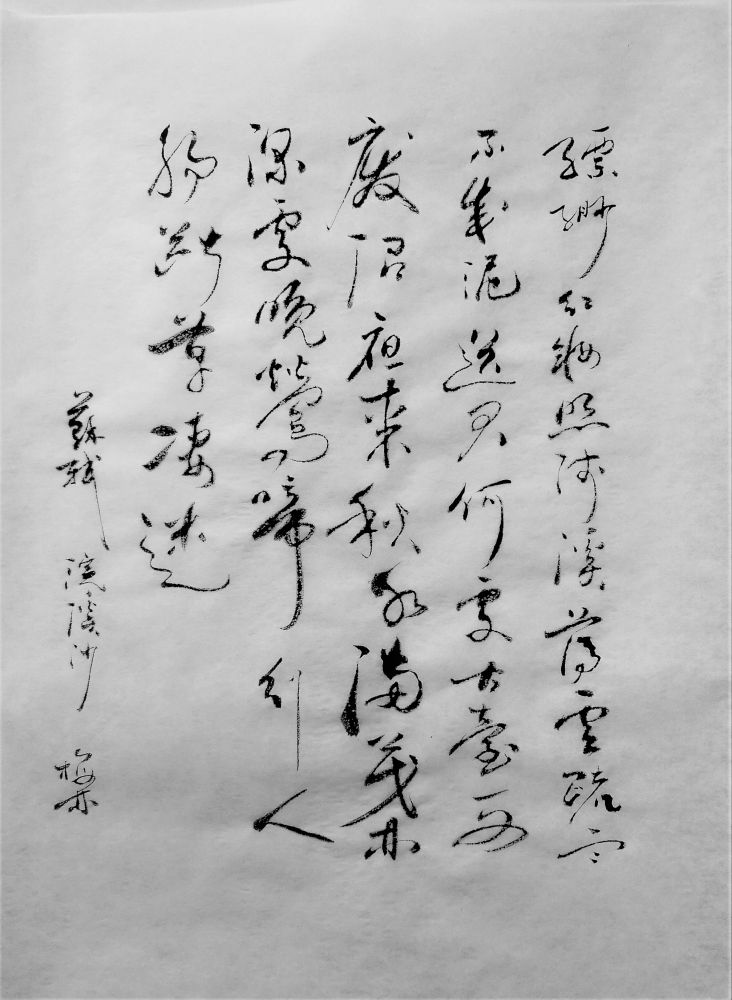 縹緲红妝照淺溪薄雲疏雨
不成泥送君何處古臺西
廢沼夜来秋水滿茂林
深處晚鶯啼行人
腸斷草凄迷
蘇軾 浣溪沙